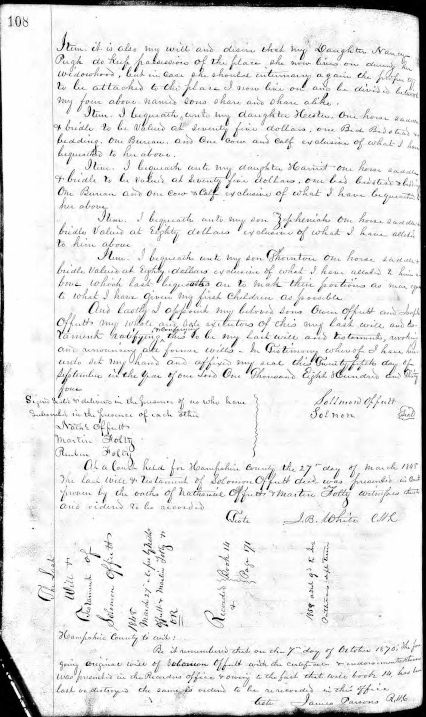 108
Item. it is also my will and desire that my Daughter Nancy
Pugh do keep possession of the place she now lives on during her
widowhood, but in case she should intermary again the property
to be attached to the place I now live on and be divided between
my four above named sons share and share alike.
Item. I bequeath unto my daughter Hester. One horse saddle
& bridle to be valued at Seventy five dollars, one Bed Bedstead &
bedding. One Bureau, and One Cow and Calf exclusive of what I have
bequeathed to her above.
Item. I bequeath unto my daughter Harriet one horse saddle
& bridle to be valued at Seventy five dollars, one bed, bedstead &
One Bureau and one cow & Calf exclusive of what I have bequeathed to
her above
Item. I bequeath unto my son Zepheniah one horse saddle
bridle valued at Eighty dollars exclusive of what I have
to him above
Item. I bequeath unt my son Thornton one horse saddle
bridle valued at Eighty dollars exclusive of what I have to him
bove which last are to make their portions as near
to what I have given my first Children as possible
And lastly I appoint my beloved sons Owen Offutt and
Offutt my whole and sole executors of this my last will and tes-
tament ratifying this to be my last will and testament, revoking
and renouncing all former wills - In Testimony whereof I have here
unto set my hand and affixed my seal this Twenty fifth day of
September in the Year of our Lord One Thousand Eight Hundred and thirty
four
Signed & delivered in the presence of us who have
Subscribed in the presence of each other
Solomon Offutt
Solmon Seal
Nathl Offutt
Martin Foltz
Reuben Foltz
At a Court held for Hampshire County the 27th day of March 1845
The last Will & Testament of Solomon Offutt decd was presented in Court
proven by the oaths of Nathaniel Offutt & Martin Foltz witnesses
and ordered to be recorded
Teste J. B. White Clk
The Last
Will &
Testament of
Solomon Offutt
1845
March 27
Offutt & Martin Foltz
O R
Recorded Book 14
& Page 71
Hampshire County to wit:
Be it remembered that on the 7th day of October 1870. The fore
going original will of Solomon Offutt with the certificate &
was presented in the Recorders office & owing to the fact that will book 14, has been
lost or destroyed the same is ordered to be rerecorded in this office
Teste James Parsons R.H.C